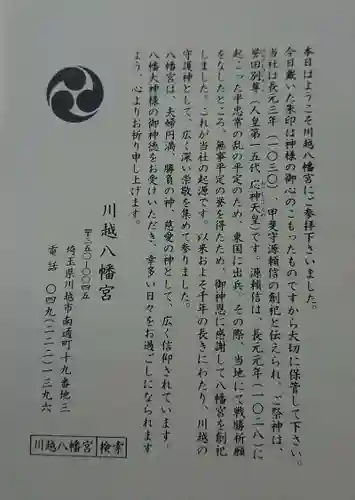 本日はようこそ川越八幡宮にご参拝下さいました。
今日戴いた朱印は神様の御心のこもったものですから大切に保管して下さい。
当社は長元三年（一〇三〇）、甲斐守源頼信の創祀と伝えられ、ご祭神は、
誉田別尊（人皇第一五代　応神天皇）です。源頼信は、長元元年（一〇二八）に
起こった平忠常の乱の平定のため、東国に出兵。その際、当地にて戦勝祈願
をなしたところ、無事平定の誉を得たため、御神恩に感謝して八幡宮を創祀
しました。これが当社の起源です。以来およそ千年の長きにわたり、川越の
守護神として、広く深い崇敬を集めて参りました。
八幡宮は、夫婦円満、勝負の神、慈愛の神として、広く信仰されています。
八幡大神様の御神徳をお受けいただき、幸多い日々をお過ごしになられます
よう、心よりお祈り申し上げます。
川越八幡宮
〒三五〇-〇〇四五
埼玉県川越市南通町十九番地三
電話　〇四九（二二二）一三九六
川越八幡宮 検索